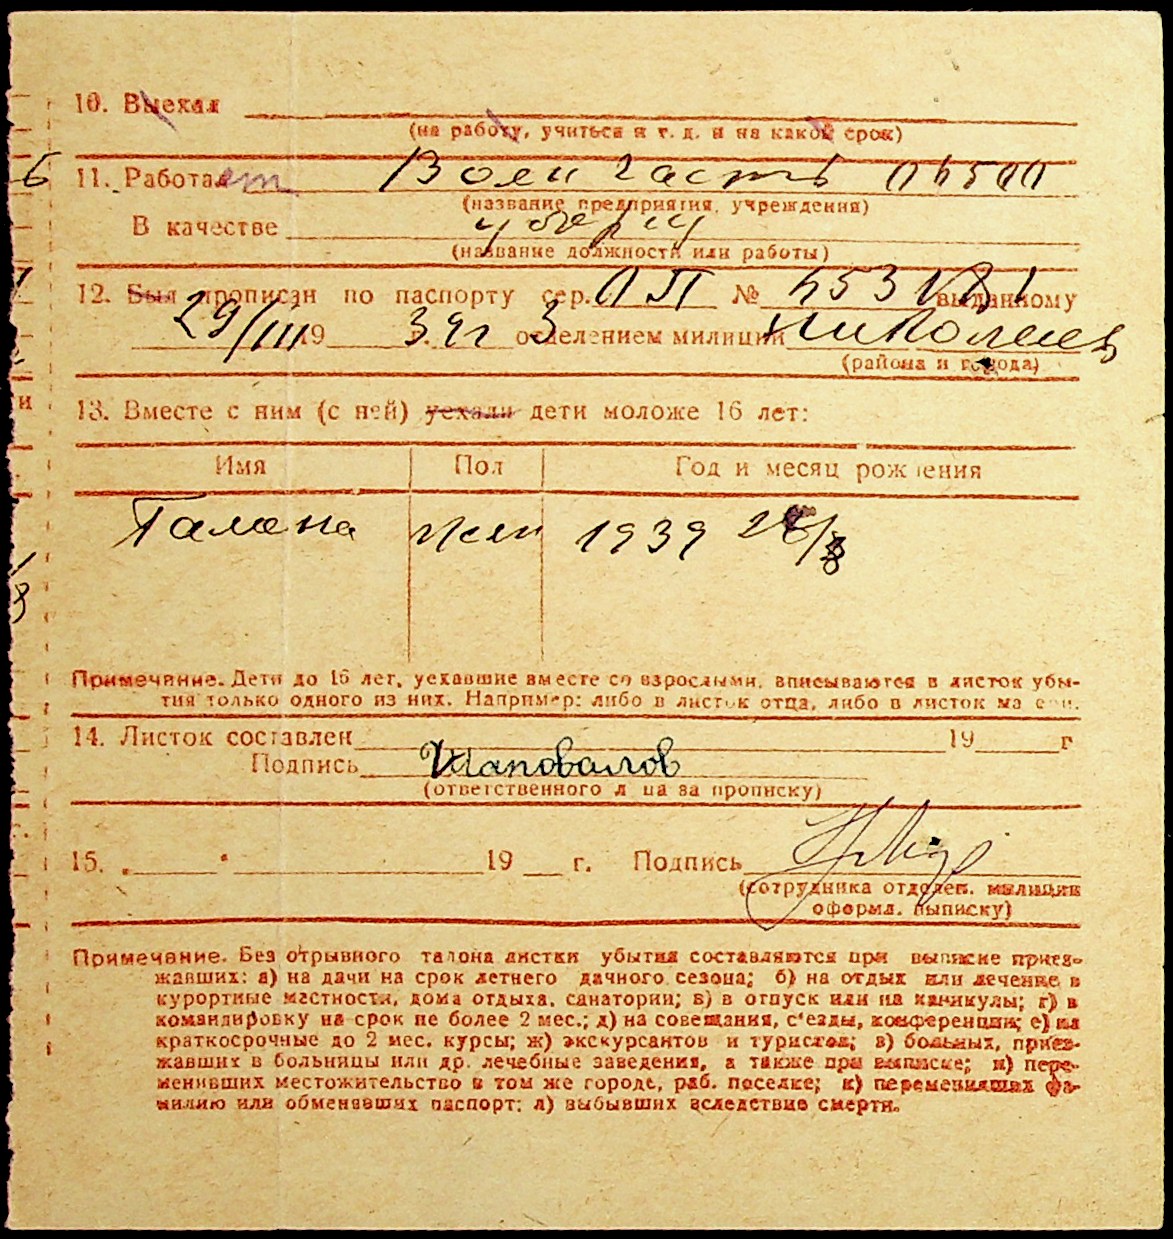 10. Выехал
(на работу, учиться и т. д. и на какой срок)
11. Работает Воен часть
(название предприятия, учреждения)
В качестве уборщ
(название должности или работы)
12. Был прописан по паспорту сер. № выданному
29/III 19 39 г 3 отделением милиции Николаев
(района и города)
13. Вместе с ним (с ней) уехали дети моложе 16 лет:
Имя Пол Год и месяц рождения
Галина жен 1939
Примечание. Дети до 16 лет, уехавшие вместе со взрослыми, вписываются в листок убы-
тия только одного из них. Например: либо в листок отца, либо в листок матери.
14. Листок составлен 19 г
Подпись Шаповалов
(ответственного лица за прописку)
15. 19 г. Подпись
(сотрудника отделен. милиции
оформл. выписку)
Примечание. Без отрывного талона листки убытия составляются при выписке приез-
жавших: а) на дачи на срок летнего дачного сезона; б) на отдых или лечение в
курортные местности, дома отдыха, санатории; в) в отпуск или на каникулы; г) в
командировку на срок не более 2 мес.; д) на совещания, с'езды, конференции; е) на
краткосрочные до 2 мес. курсы; ж) экскурсантов и туристов; з) больных, приез-
жавших в больницы или др. лечебные заведения, а также при выписке; и) пере-
менивших местожительство в том же городе, раб. поселке; к) переменивших фа-
милию или обменявших паспорт; л) выбывших вследствие смерти.